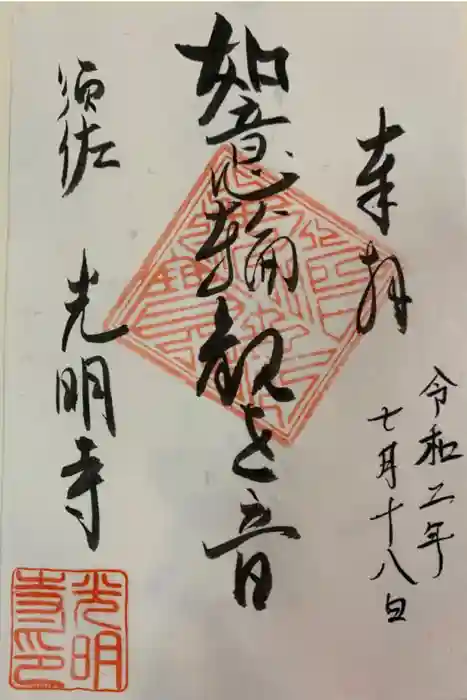 奉拝
令和二年
七月十八日
如意輪観世音
須佐
光明寺
光明
寺印